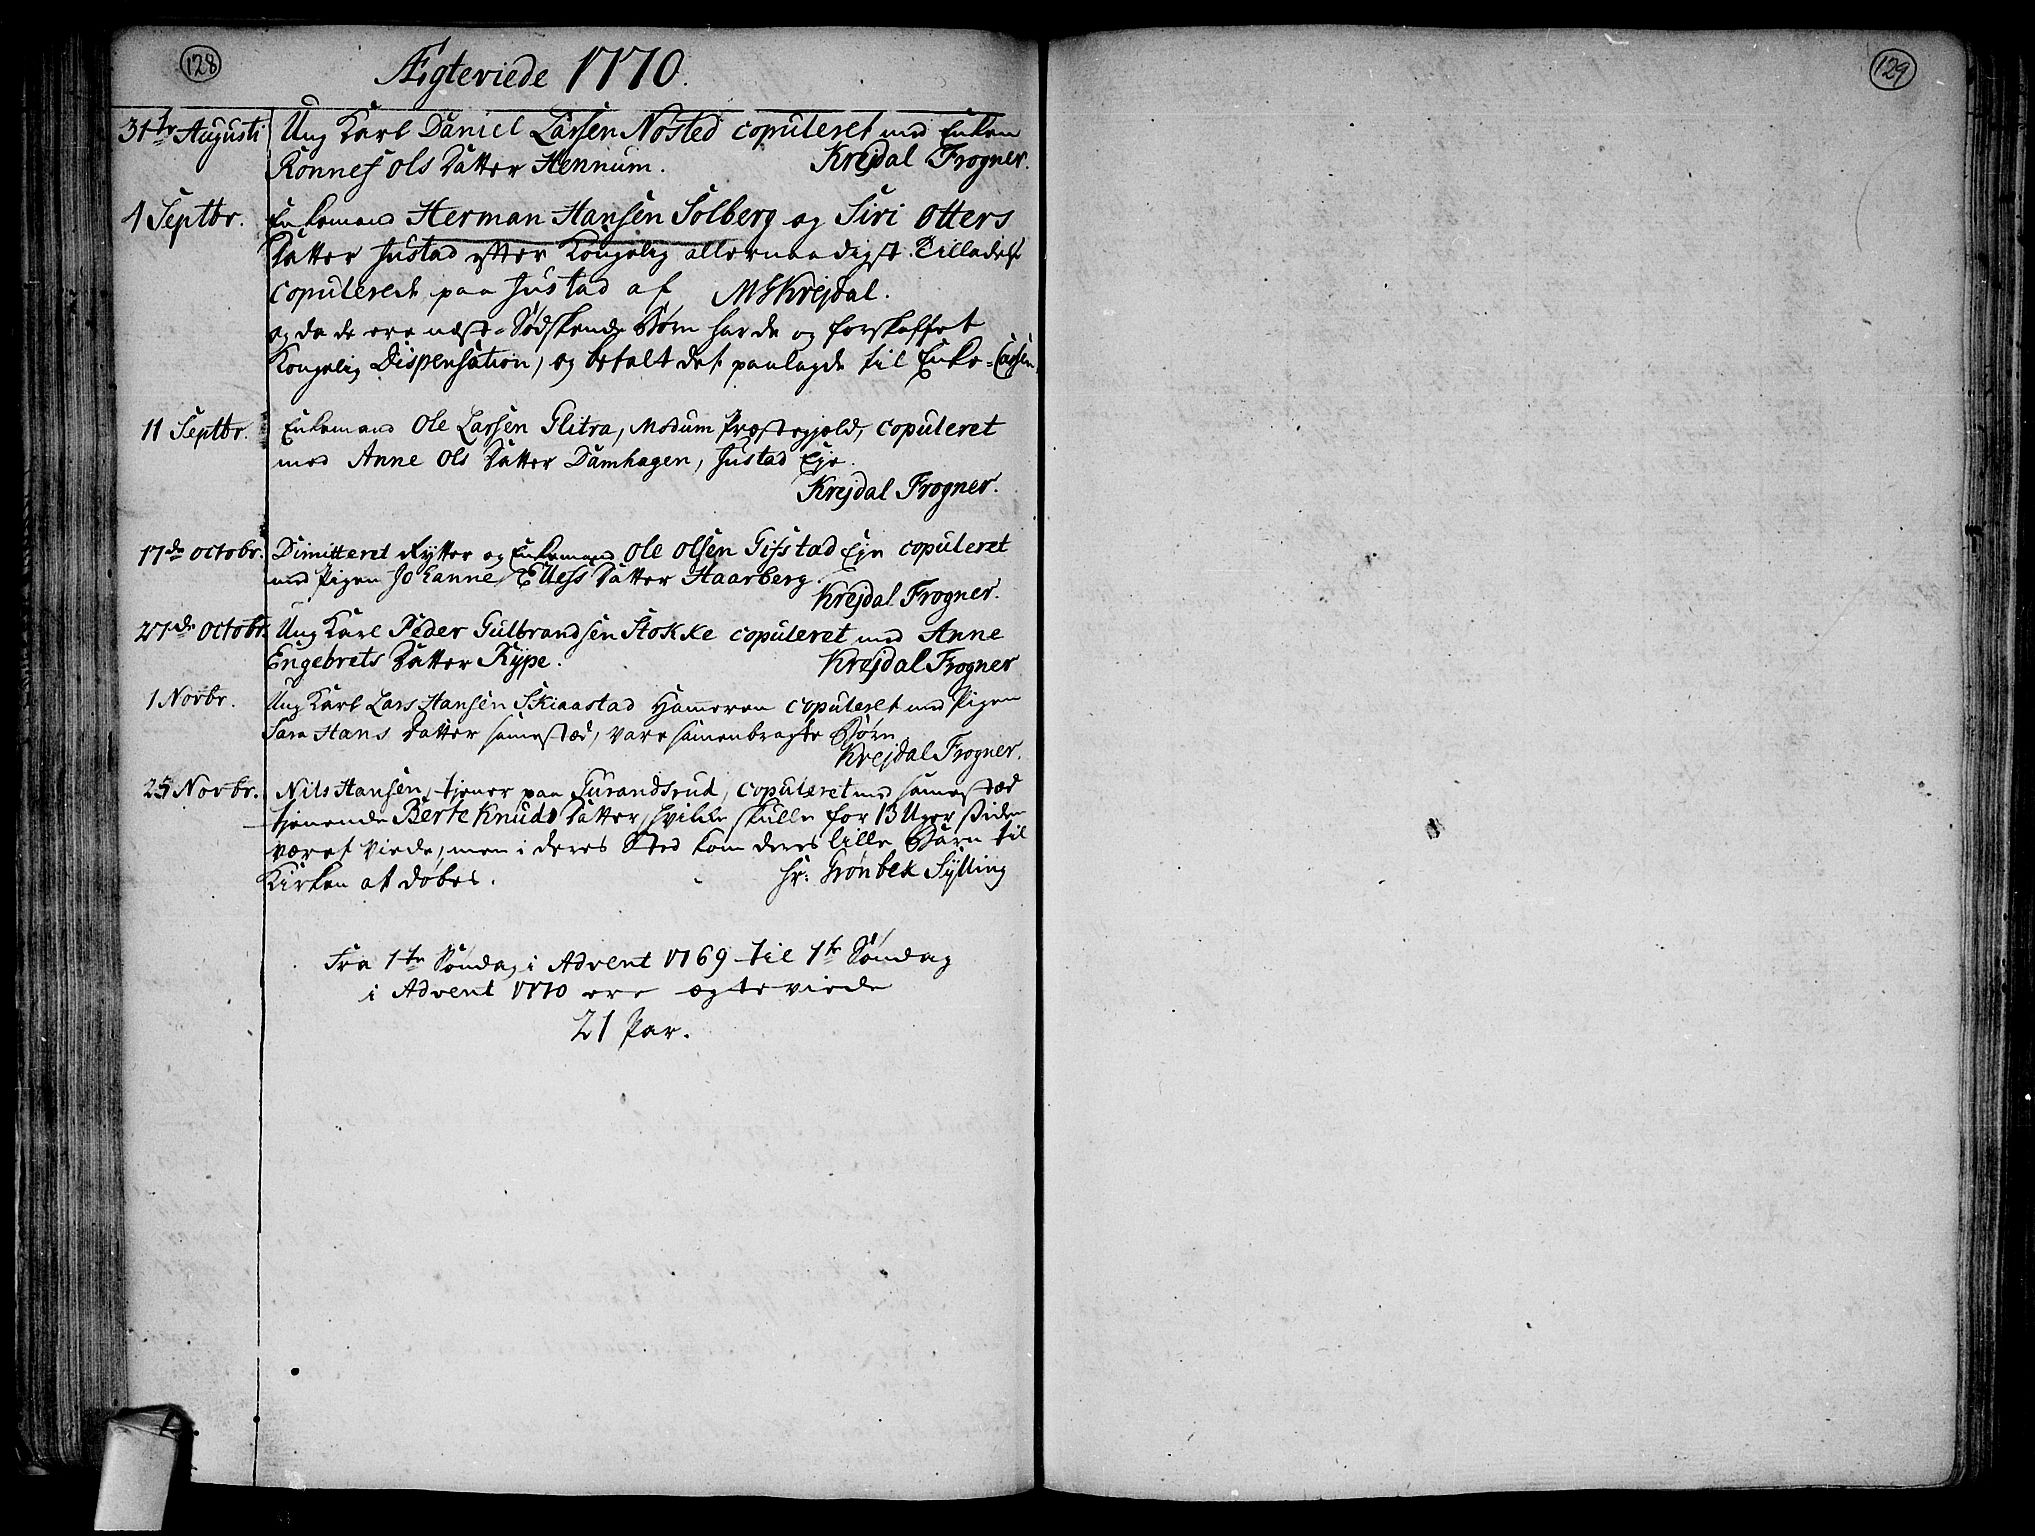 128
Ægteviede 1770.
129
31te Augusti Ung Karl Daniel Larsen Nøsted copuleret med Enken
Rønnes Ols Datter Hennum. Krejdal Frogner.
4 Septbr. Enkemand Herman Hansen Solberg og Siri Otters
Datter Justad efter Kongelig allernaadigst Tilladelse
copulerede paa Justad af MGKrejdal.
og da de ere næst-Sødskende Børn har de og forskaffet
Kongelig Dispensation, og betalt det paalagde til Enke-Cassen
11 Septbr. Enkemand Ole Larsen Glitra, Modum Præstegield, copuleret
med Anne Ols Datter Damhagen, Justad Eje.
Krejdal Frogner.
17de Octobr. Dimitteret Rytter og Enkemand Ole Olsen Gifstad Eje copuleret
med Pigen Johanne Ellefs Datter Haarberg.
Krejdal Frogner.
27de Octobr. Ung Karl Peder Gulbrandsen Stokke copuleret med Anne
Engebrets Datter Rype. Krejdal Frogner
1 Novbr. Ung Karl Lars Hansen Skiaastad Hameren copuleret med Pigen
Sara Hans Datter samestæd, vare samenbragte Børn
Krejdal Frogner.
25 Novbr. Nils Hansen, tjener paa Gurandsrud, copuleret med samestæd
tjenende Berte Knuds Datter, hvilke skulle for 13 Uger siden
været viede, men i deres Sted kom deres lille Barn til
Kirken at døbes. Hr: Grønbek Sylling
Fra 1te Søndag i Advent 1769 til 1te Søndag
i Advent 1770 ere ægteviede
21 Par.